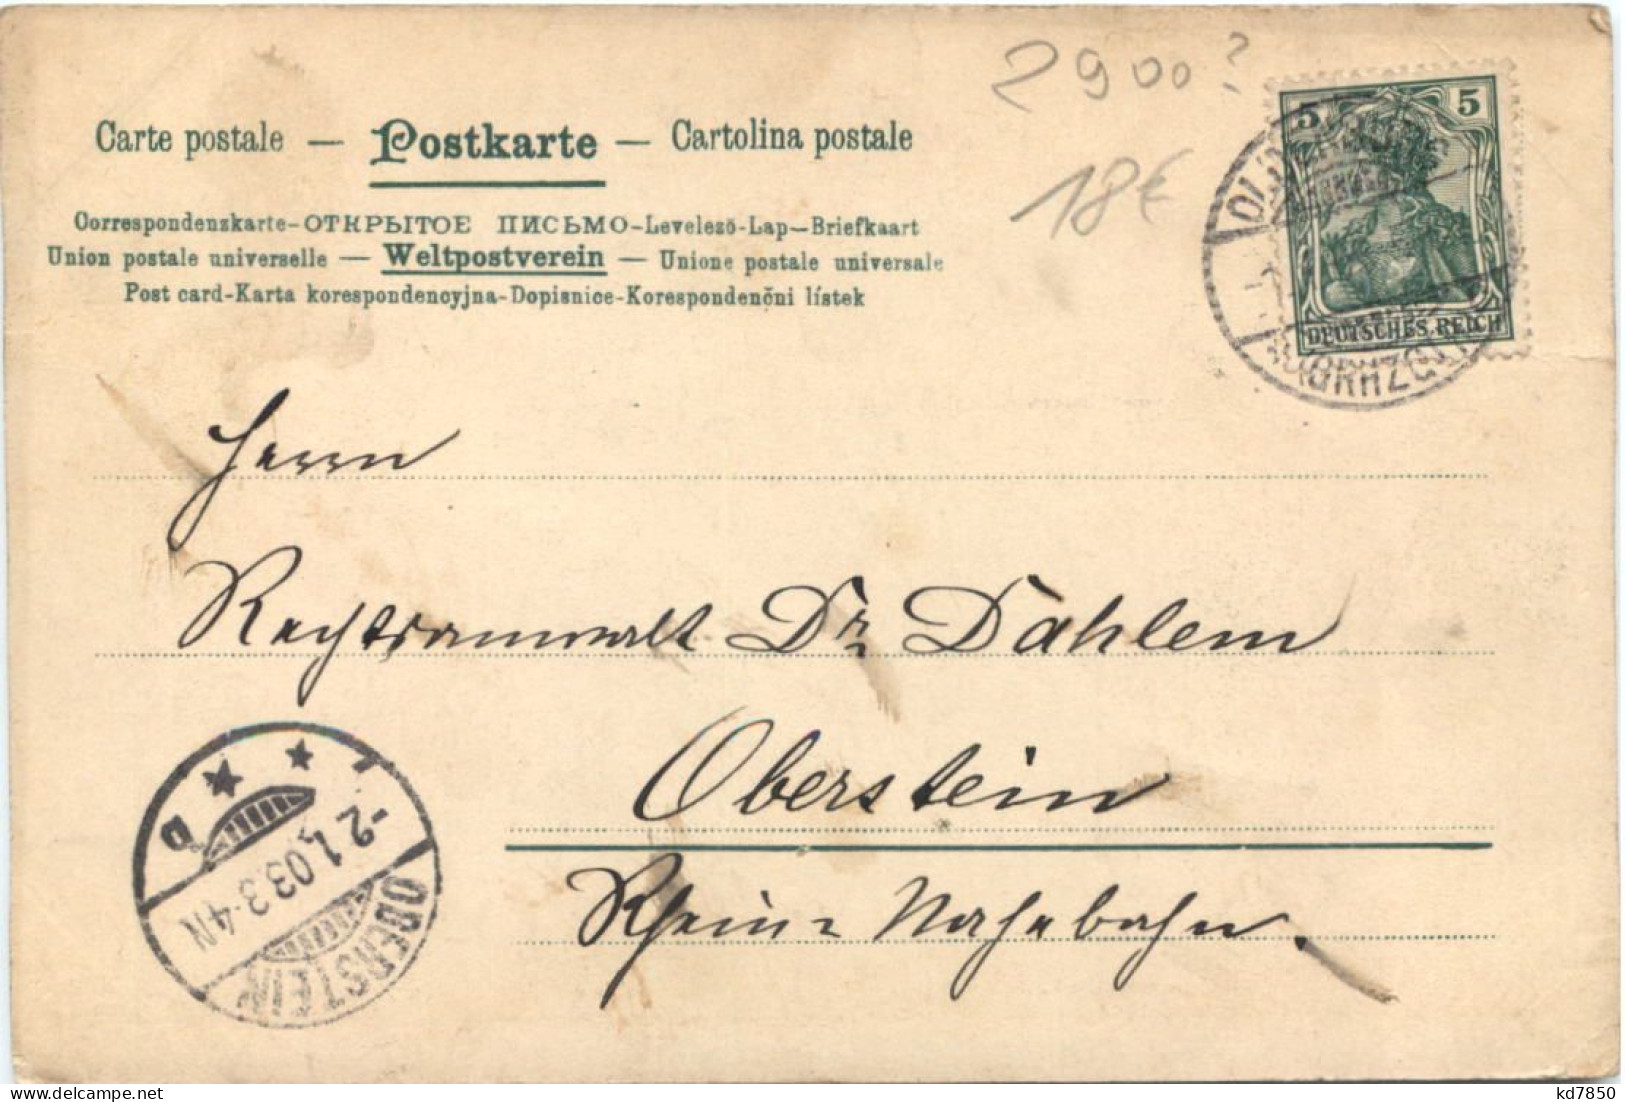 2900?
5 5
Carte postale — Postkarte — Cartolina postale
18€
Correspondenzkarte-ОТКРЫТОЕ ПИСЬМО-Levelező-Lap-Briefkaart
Union postale universelle — Weltpostverein — Unione postale universale
Post card-Karta korespondencyjna-Dopisnice-Korespondenční lístek
DEUTSCHES REICH
Herrn
Rechtsanwalt Dr. Dahlem
Oberstein
Rhein-Nahebahn.
OBERSTEIN
-2.1.03.3-4N
* * a
delcampe.net
kd7850